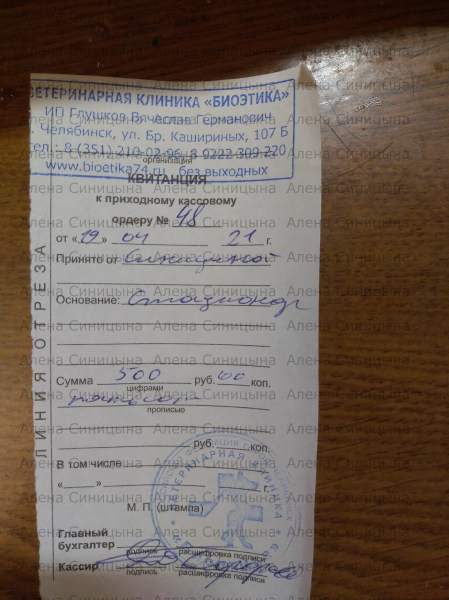 ВЕТЕРИНАРНАЯ КЛИНИКА «БИОЭТИКА»
ИП Глушков Вячеслав Германович
г. Челябинск, ул. Бр. Кашириных, 107 Б
тел.: 8 (351) 210-02-96, 8 9222 309 220
организация
www.bioetika74.ru без выходных
КВИТАНЦИЯ
к приходному кассовому
ордеру № 48
от «19» 04 21 г.
Принято от Синицыной
Основание: Стационар
Сумма 500 руб. 00 коп.
цифрами
пятьсот
прописью
руб. коп.
В том числе
« » г.
М. П. (штампа)
Главный
бухгалтер
подпись расшифровка подписи
Кассир
подпись расшифровка подписи
ЛИНИЯ ОТРЕЗА
ВЕТЕРИНАРНАЯ КЛИНИКА
Алена Синицына